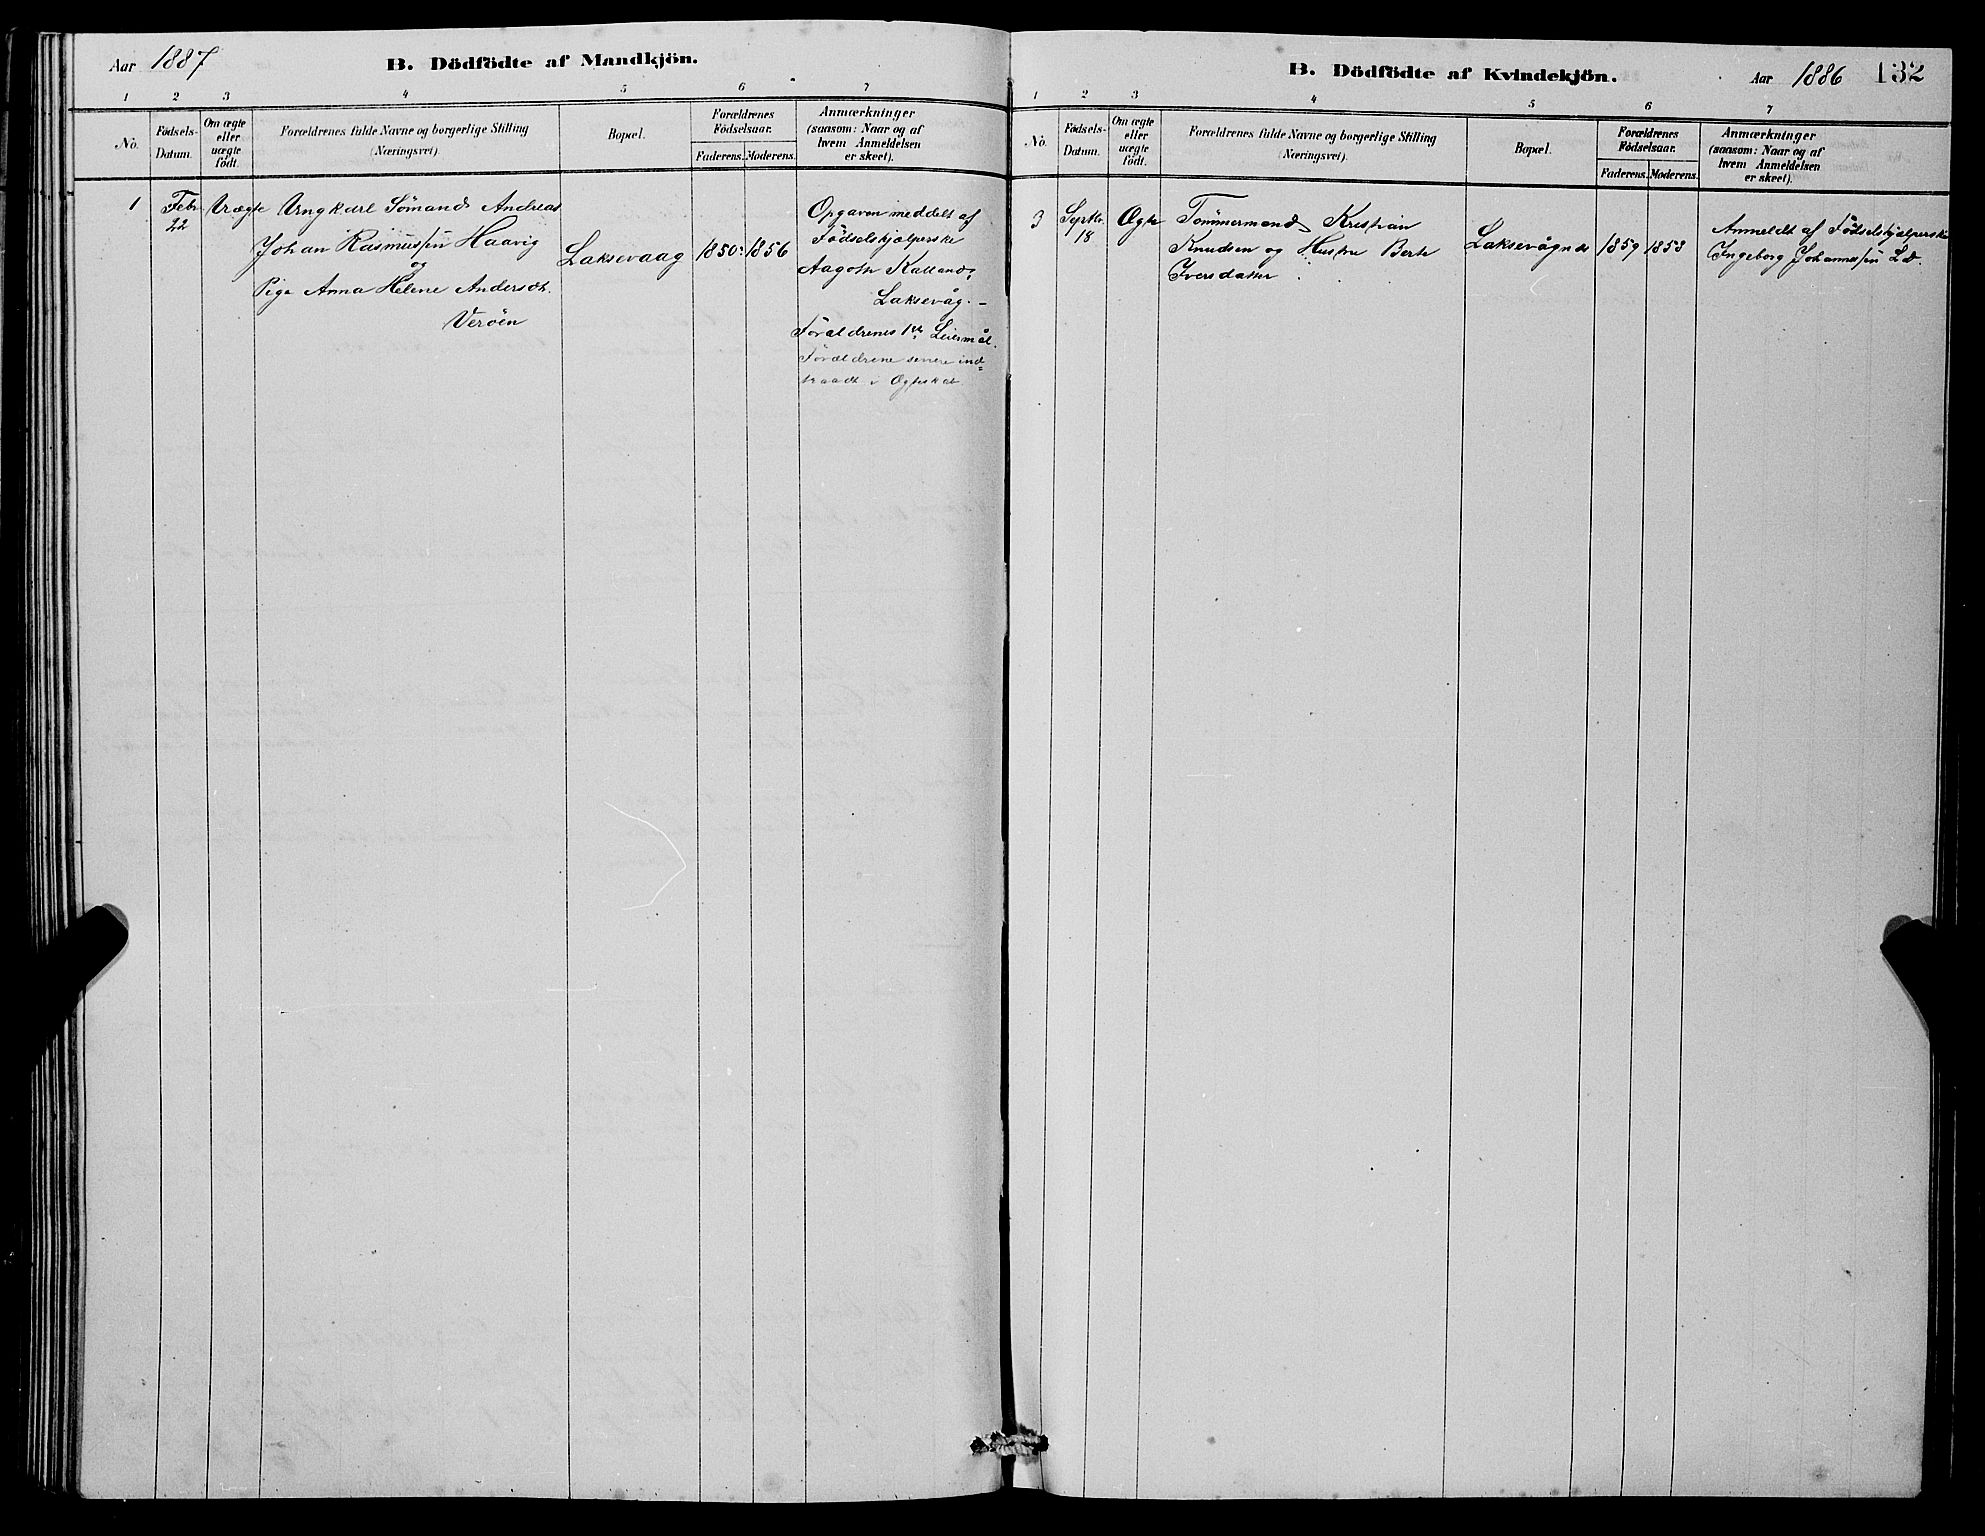 Aar 1887
B. Dödfödte af Mandkjön.
1 2 3 4 5 6 7
No.
Födsels-
Datum.
Om ægte
eller
uægte
födt.
Forældrenes fulde Navne og borgerlige Stilling
(Næringsvei).
Bopæl.
Forældrenes
Födselsaar.
Faderens. Moderens.
Anmærkninger
(saasom: Naar og af
hvem Anmeldelsen
er skeet).
1
Febr
22
Uægte
Ungkarl Sømand Andreas
Johan Rasmussen Haavig
og
Pige Anna Helene Andersdt.
Verøen
Laksevaag
1850
1856
Opgaven meddelt af
Fødselshjælperske
Aagothe Kalland,
Laksevåg. –
Forældrenes 1ste Leiermål.
Forældrene senere ind=
traadt i Ægteskab
B. Dödfödte af Kvindekjön.
Aar 1886
132
1 2 3 4 5 6 7
No.
Födsels-
Datum.
Om ægte
eller
uægte
födt.
Forældrenes fulde Navne og borgerlige Stilling
(Næringsvei).
Bopæl.
Forældrenes
Födselsaar.
Faderens. Moderens.
Anmærkninger
(saasom: Naar og af
hvem Anmeldelsen
er skeet).
3
Septbr.
18
Ægte
Tømmermand Kristian
Knudsen og Hustru Berte
Iversdatter
Laksevågnæs
1859
1853
Anmeldt af Fødselshjælperske
Ingeborg Johannessen Ld.